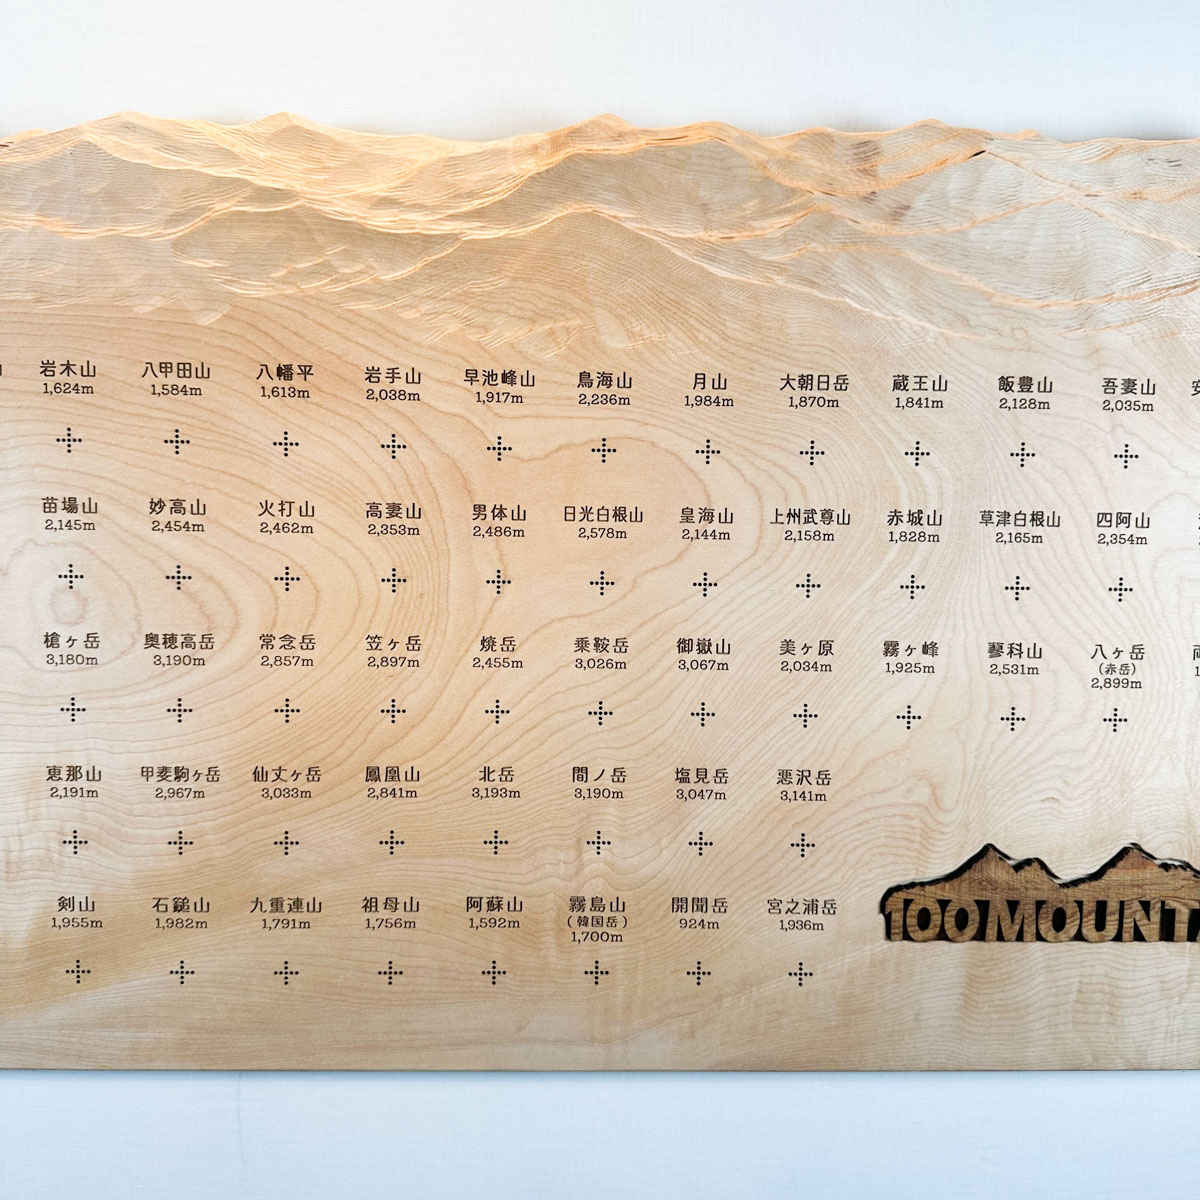 岩木山 八甲田山 八幡平 岩手山 早池峰山 鳥海山 月山 大朝日岳 蔵王山 飯豊山 吾妻山
1,624m 1,584m 1,613m 2,038m 1,917m 2,236m 1,984m 1,870m 1,841m 2,128m 2,035m
苗場山 妙高山 火打山 高妻山 男体山 日光白根山 皇海山 上州武尊山 赤城山 草津白根山 四阿山
2,145m 2,454m 2,462m 2,353m 2,486m 2,578m 2,144m 2,158m 1,828m 2,165m 2,354m
槍ヶ岳 奥穂高岳 常念岳 笠ヶ岳 焼岳 乗鞍岳 御嶽山 美ヶ原 霧ヶ峰 蓼科山 八ヶ岳
(赤岳)
3,180m 3,190m 2,857m 2,897m 2,455m 3,026m 3,067m 2,034m 1,925m 2,531m 2,899m
恵那山 甲斐駒ヶ岳 仙丈ヶ岳 鳳凰山 北岳 間ノ岳 塩見岳 悪沢岳
2,191m 2,967m 3,033m 2,841m 3,193m 3,190m 3,047m 3,141m
剣山 石鎚山 九重連山 祖母山 阿蘇山 霧島山 開聞岳 宮之浦岳
(韓国岳)
1,955m 1,982m 1,791m 1,756m 1,592m 1,700m 924m 1,936m
100 MOUNTA